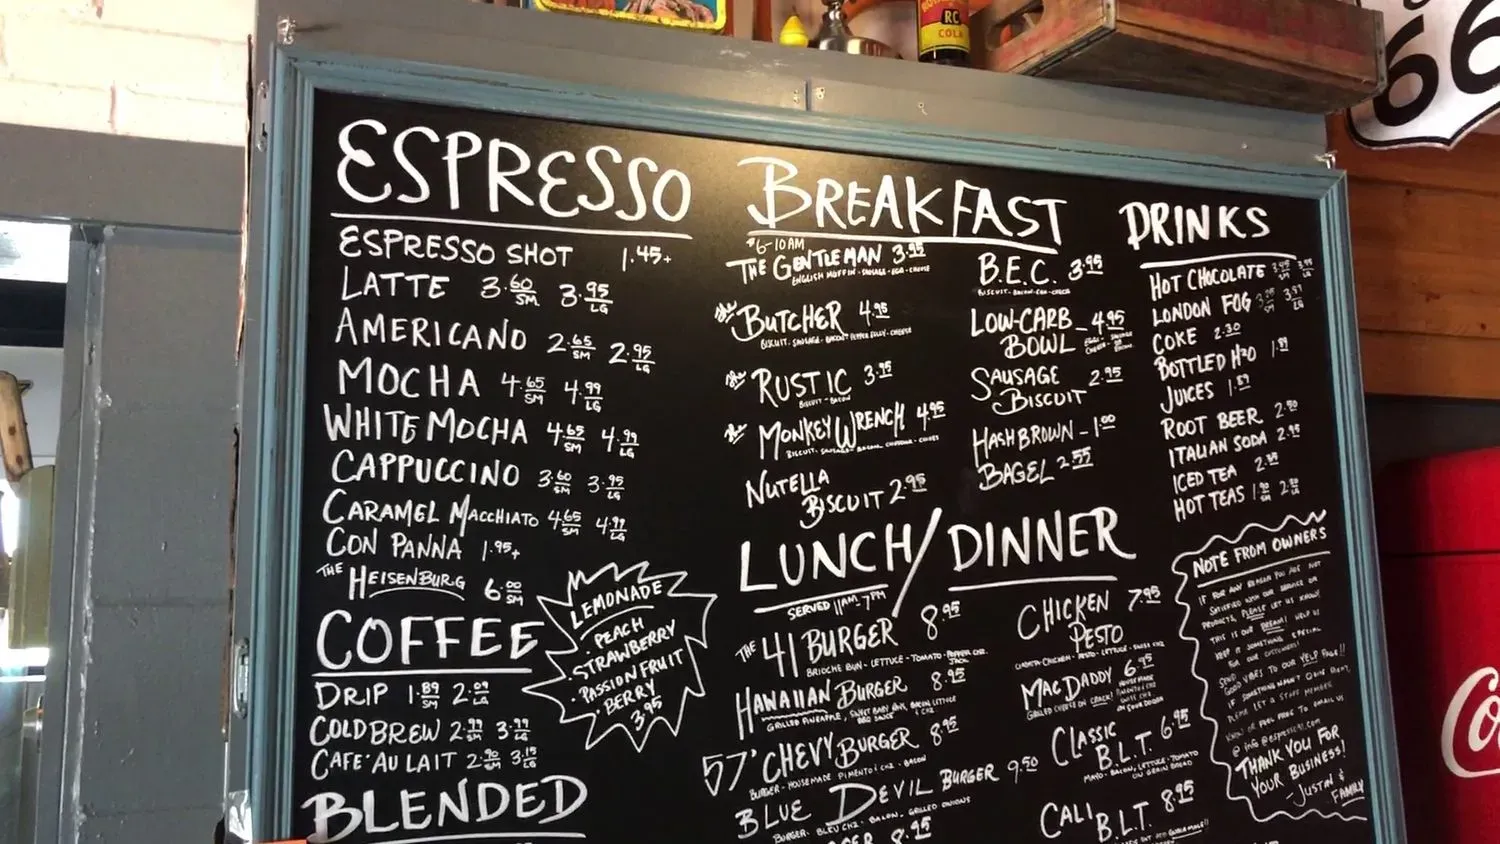 RC
COLA
66
ESPRESSO
ESPRESSO SHOT 1.45+
LATTE 3.60 SM 3.95 LG
AMERICANO 2.65 SM 2.95 LG
MOCHA 4.65 SM 4.99 LG
WHITE MOCHA 4.65 SM 4.99 LG
CAPPUCCINO 3.60 SM 3.95 LG
CARAMEL MACCHIATO 4.65 SM 4.99 LG
CON PANNA 1.95+
THE HEISENBURG 6.00 SM
COFFEE
DRIP 1.89 SM 2.09 LG
COLD BREW 2.99 SM 3.99 LG
CAFE' AU LAIT 2.90 SM 3.15 LG
BLENDED
LEMONADE
· PEACH
· STRAWBERRY
· PASSION FRUIT
· BERRY
3.95
BREAKFAST
6-10AM
THE GENTLEMAN 3.95
ENGLISH MUFFIN - SAUSAGE - EGG - CHEESE
THE BUTCHER 4.95
BISCUIT - SAUSAGE - BACON - PEPPER JELLY - CHEESE
THE RUSTIC 3.95
BISCUIT - BACON
THE MONKEY WRENCH 4.95
NUTELLA
BISCUIT 2.95
B.E.C. 3.95
BISCUIT - BACON - EGG - CHEESE
LOW-CARB - 4.95
BOWL
SAUSAGE 2.95
BISCUIT
HASHBROWN - 1.00
BAGEL 2.55
LUNCH/DINNER
SERVED 11AM-7PM
THE 41 BURGER 8.95
BRIOCHE BUN - LETTUCE - TOMATO - PEPPER JACK
HAWAIIAN BURGER 8.95
57' CHEVY BURGER 8.95
BURGER - HOUSEMADE PIMENTO CHZ - BACON
BLUE DEVIL BURGER 9.50
BURGER - BLEU CHZ - BACON - GRILLED ONIONS
8.95
CHICKEN 7.95
PESTO
MAC DADDY 6.95
CLASSIC 6.95
B.L.T.
MAYO - BACON, LETTUCE - TOMATO
CALI 8.95
B.L.T.
DRINKS
HOT CHOCOLATE
LONDON FOG
COKE 2.30
BOTTLED H2O 1.89
JUICES 1.89
ROOT BEER 2.50
ITALIAN SODA 2.95
ICED TEA
HOT TEAS
NOTE FROM OWNERS
IF FOR ANY REASON YOU ARE NOT
SATISFIED WITH OUR SERVICE OR
PRODUCTS, PLEASE LET US KNOW!
THIS IS OUR DREAM! HELP US
KEEP IT SOMETHING SPECIAL
FOR OUR CUSTOMERS!
SEND
GOOD VIBES TO OUR YELP PAGE!!
IF SOMETHING WASN'T QUITE RIGHT,
PLEASE LET A STAFF MEMBER
KNOW OR FEEL FREE TO EMAIL US
THANK YOU FOR
YOUR BUSINESS!
- JUSTIN &
FAMILY